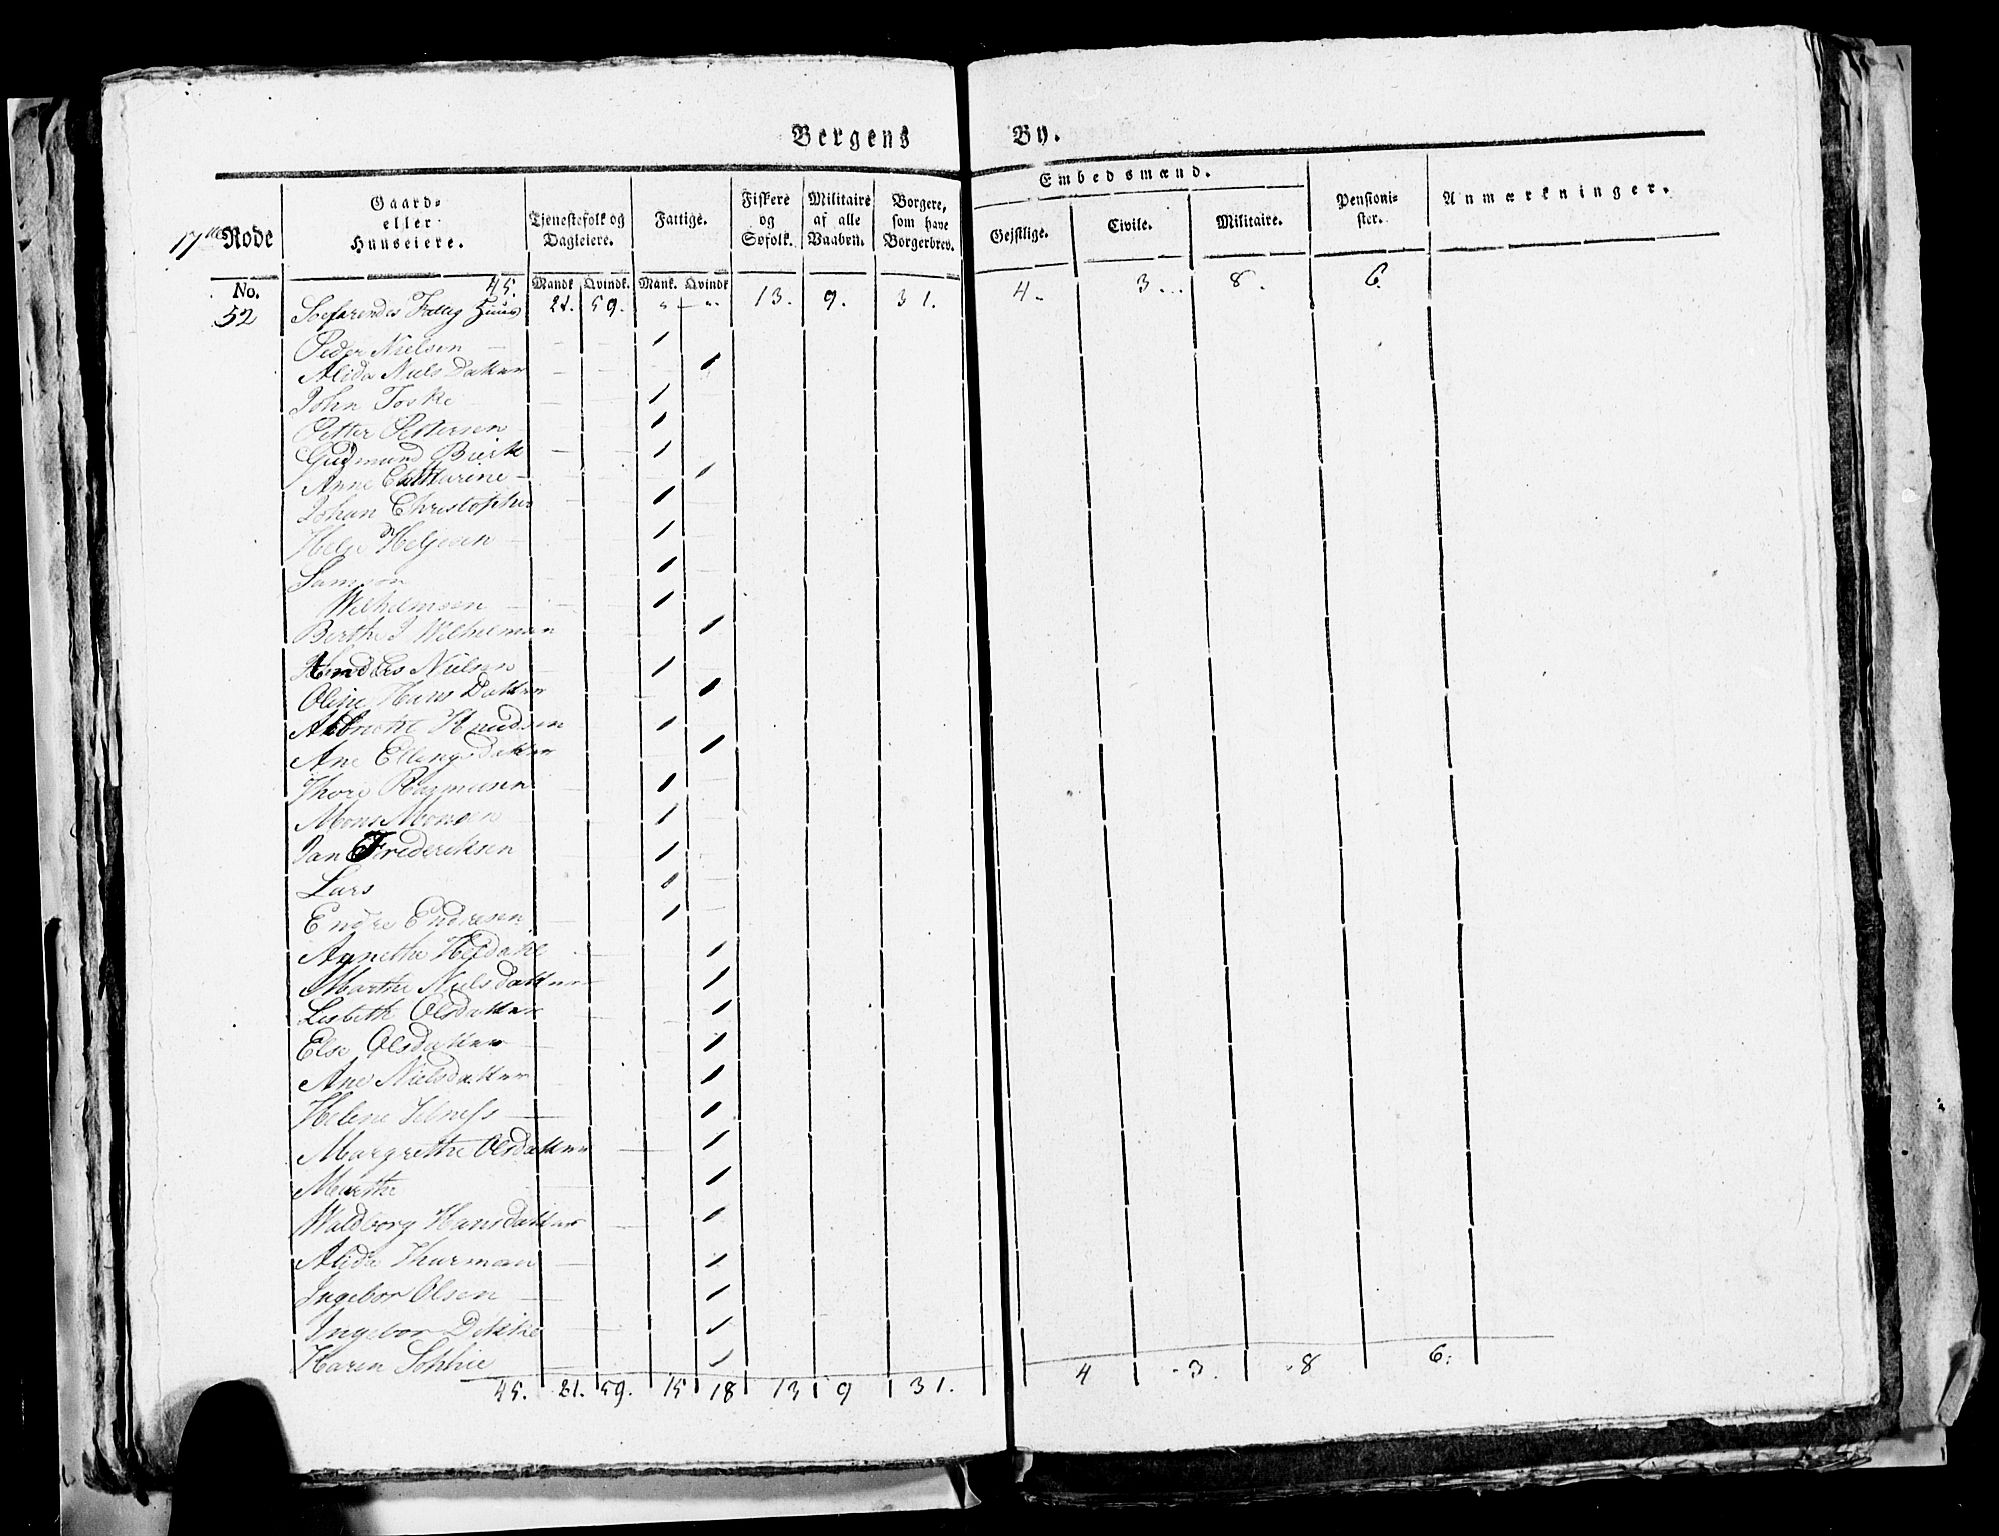 Bergens By.
17de Rode
Gaard-
eller
Huuseiere.
Tjenestefolk og
Dagleiere.
Fattige.
Fiskere
og
Søfolk.
Militaire
af alle
Vaaben.
Borgere,
som have
Borgerbrev.
Embedsmænd.
Gejstlige.
Civile.
Militaire.
Pensioni-
ster.
Anmærkninger.
No.
Mandk Qvindk. Mank. Qvindk
45.
52 Søefarendes Fattig Huus 21. 59. " " 13. 9. 31. 4. 3. 8. 6.
Peder Nielsen
Alida Niels Datter
John Toske
Petter Pettersen
Gudmund
Anne Catharine
Johan Christopher
Helje Heljesen
Samson
Wilhelmsen
Berthe J Wilhelmsen
Anders Nielsen
Oline Hans Datter
Albrecht Knudsen
Ane Ellengsdatter
Thore Rasmusen
Mons Monsen
Jan Frederiksen
Lars
Endre Endresen
Agnethe Heldahl
Marthe Nielsdatter
Lisbeth Olsdatter
Else Olsdatter
Ane Nielsdatter
Helene
Margrethe Olsdatter
Marthe
Waldborg Hansdatter
Alida Thurman
Ingebor Olsen
Ingebor Dekke
Karen Sophie
45. 21. 59. 15 18 13 9 31. 4 3. 8 6.